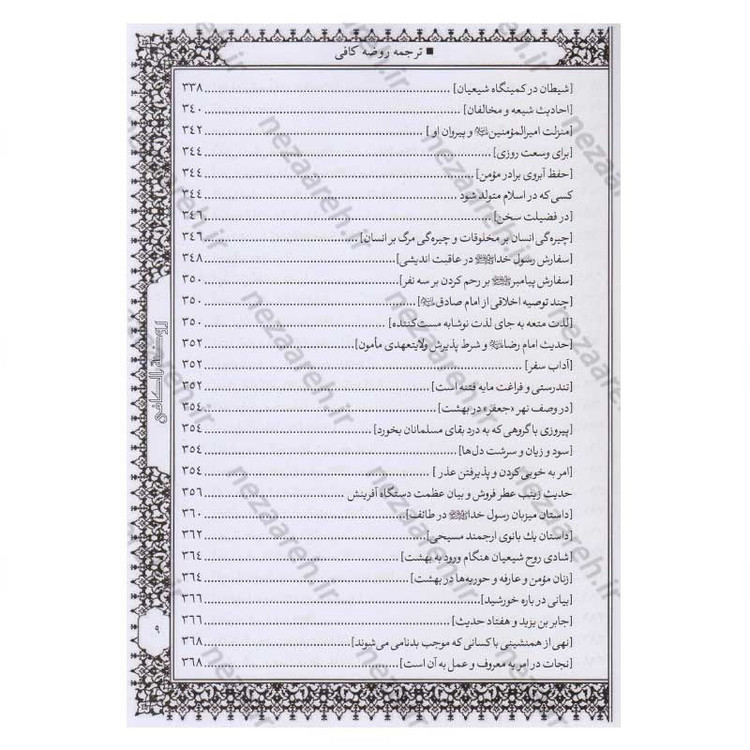 ■ ترجمه روضه کافی
[شیطان در کمینگاه شیعیان] ........ ٣٣٨
[احادیث شیعه و مخالفان] ........ ٣٤٠
[منزلت امیرالمؤمنین و پیروان او ] ........ ٣٤٢
[برای وسعت روزی] ........ ٣٤٤
[حفظ آبروی برادر مؤمن] ........ ٣٤٤
کسی که در اسلام متولد شود ........ ٣٤٤
[در فضیلت سخن] ........ ٣٤٦
[چیره‌گی انسان بر مخلوقات و چیره‌گی مرگ بر انسان] ........ ٣٤٦
[سفارش رسول خداﷺ در عاقبت اندیشی] ........ ٣٤٨
[سفارش پیامبرﷺ بر رحم کردن بر سه نفر] ........ ٣٥٠
[چند توصیه اخلاقی از امام صادق] ........ ٣٥٠
[لذت متعه به جای لذت نوشابه مست‌کننده] ........ ٣٥٠
[حدیث امام رضا و شرط پذیرش ولایتعهدی مأمون] ........ ٣٥٢
[آداب سفر] ........ ٣٥٢
[تندرستی و فراغت مایه فتنه است] ........ ٣٥٢
[در وصف نهر «جعفر» در بهشت] ........ ٣٥٤
[پیروزی با گروهی که به درد بقای مسلمانان بخورد] ........ ٣٥٤
[سود و زیان و سرشت دل‌ها] ........ ٣٥٤
[امر به خوبی کردن و پذیرفتن عذر ] ........ ٣٥٤
حدیث زینب عطر فروش و بیان عظمت دستگاه آفرینش ........ ٣٥٦
[داستان میزبان رسول خداﷺ در طائف] ........ ٣٦٠
[داستان یك بانوی ارجمند مسیحی] ........ ٣٦٢
[شادی روح شیعیان هنگام ورود به بهشت] ........ ٣٦٤
[زنان مؤمن و عارفه و حوریه‌ها در بهشت] ........ ٣٦٤
[بیانی در باره خورشید] ........ ٣٦٦
[جابر بن یزید و هفتاد حدیث] ........ ٣٦٦
[نهی از همنشینی با کسانی که موجب بدنامی می‌شوند] ........ ٣٦٨
[نجات در امر به معروف و عمل به آن است] ........ ٣٦٨
٩
nezaareh.ir